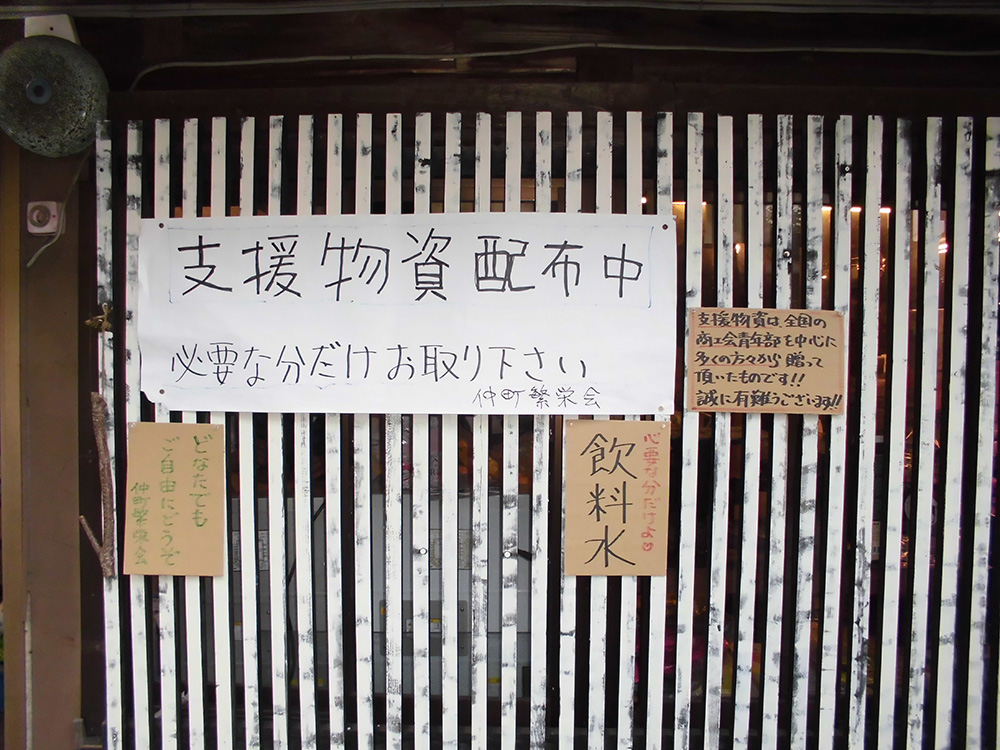 支援物資配布中
必要な分だけお取り下さい
仲町繁栄会
支援物資は、全国の
商工会青年部を中心に
多くの方々から贈って
頂いたものです!!
誠に有難うございます!!
どなたでも
ご自由にどうぞ
仲町繁栄会
心要な分だけよ♡
飲料水